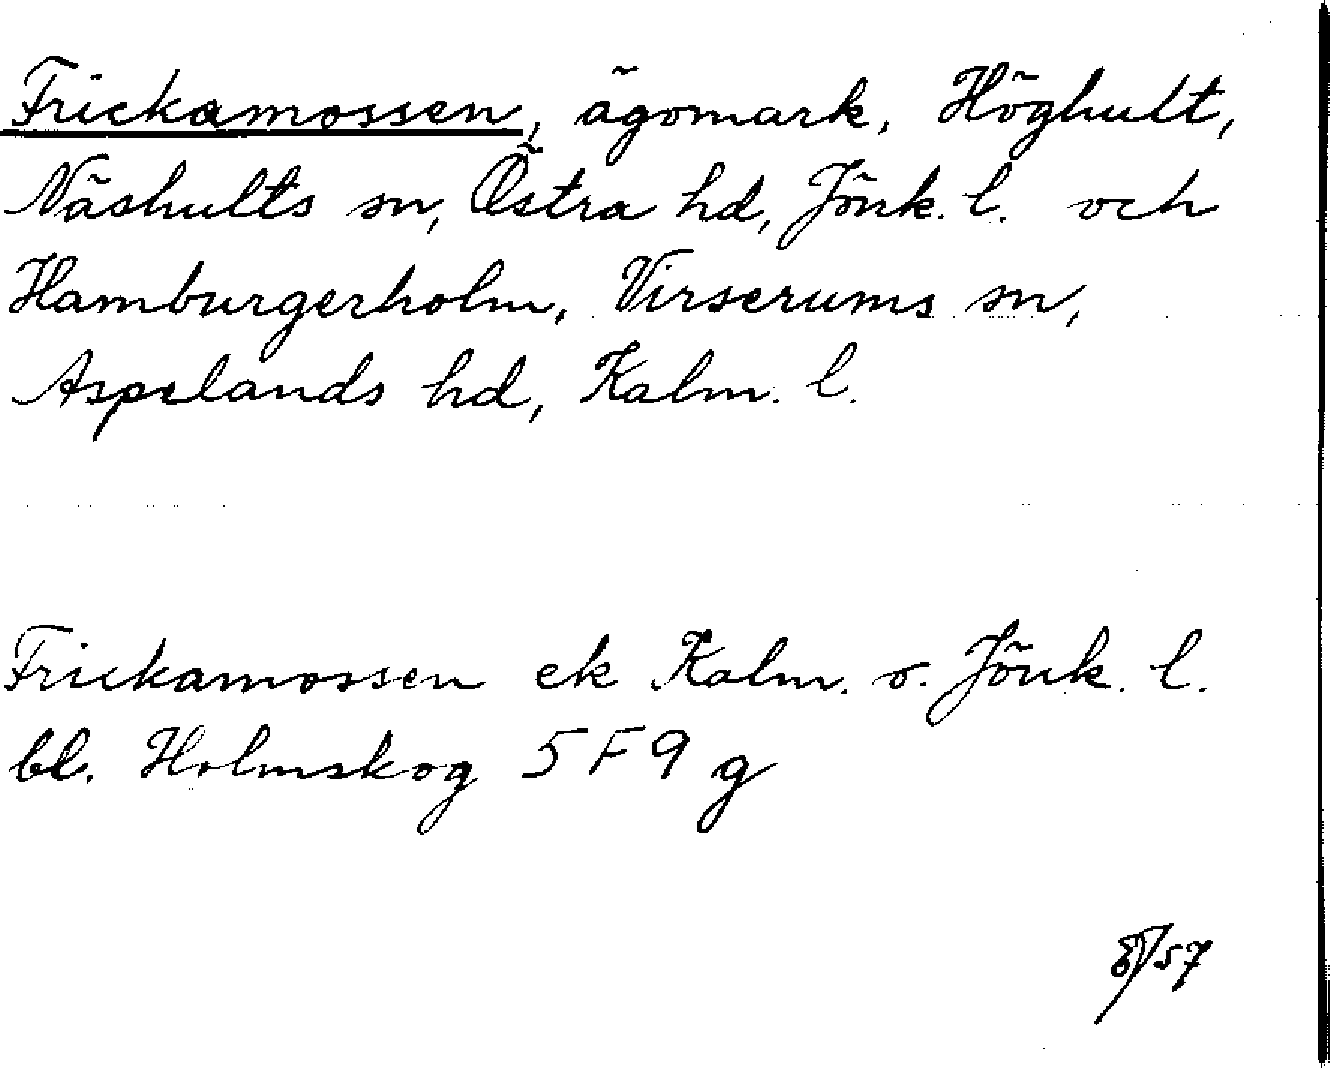 Frickamossen, ägomark, Höghult,
Näshults sn, Östra hd, Jönk. l. och
Hamburgerholm, Virserums sn,
Aspelands hd, Kalm. l.
Frickamossen ek Kalm. o. Jönk. l.
bl. Holmskog 5 F 9 g
/57